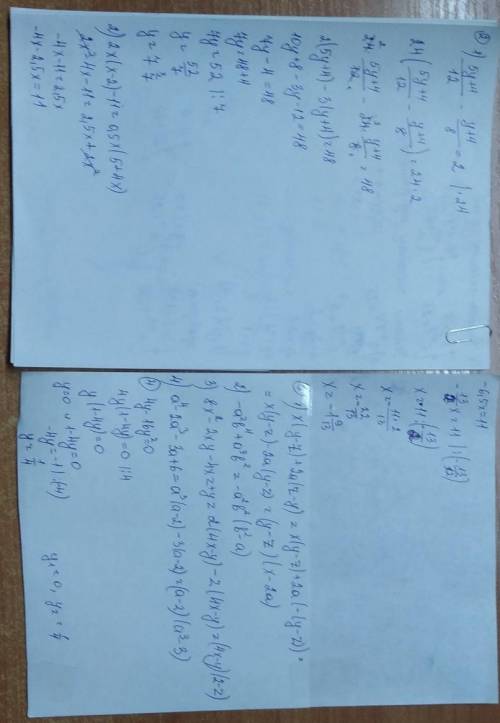 ② 1) (5y+4)/12 - (y+4)/8 = 2 | ·24
24((5y+4)/12 - (y+4)/8) = 24·2
24 · (5y+4)/12 - 24 · (y+4)/8 = 48
2(5y+4) - 3(y+4) = 48
10y+8-3y-12=48
7y-4=48
7y=48+4
7y=52 |:7
y=52/7
y=7 3/7
2) 2x(x-2)-11=0,5x(5+4x)
2x²-4x-11=2,5x+2x²
-4x-11=2,5x
-4x-2,5x=11
-6,5x=11
-13/2 x=11 |:(-13/2)
x=11:(-13/2)
x=-11·2/13
x=-22/13
x=-1 9/13
1) x(y-z)+2a(z-y)=x(y-z)+2a(-(y-z))=
=x(y-z)-2a(y-z)=(y-z)(x-2a)
2) -a²b⁴+a³b²=-a²b²(b²-a)
3) 8x²-2xy-4xz+yz=2(4x-y)-z(4x-y)=(4x-y)(2-z)
4) a⁴-2a³-3a+6=a³(a-2)-3(a-2)=(a-2)(a³-3)
④ 4y-16y²=0
4y(1-4y)=0 |:4
y(1-4y)=0
y=0 и 1-4y=0
-4y=-1 |:(-4)
y=1/4
y₁=0, y₂=1/4